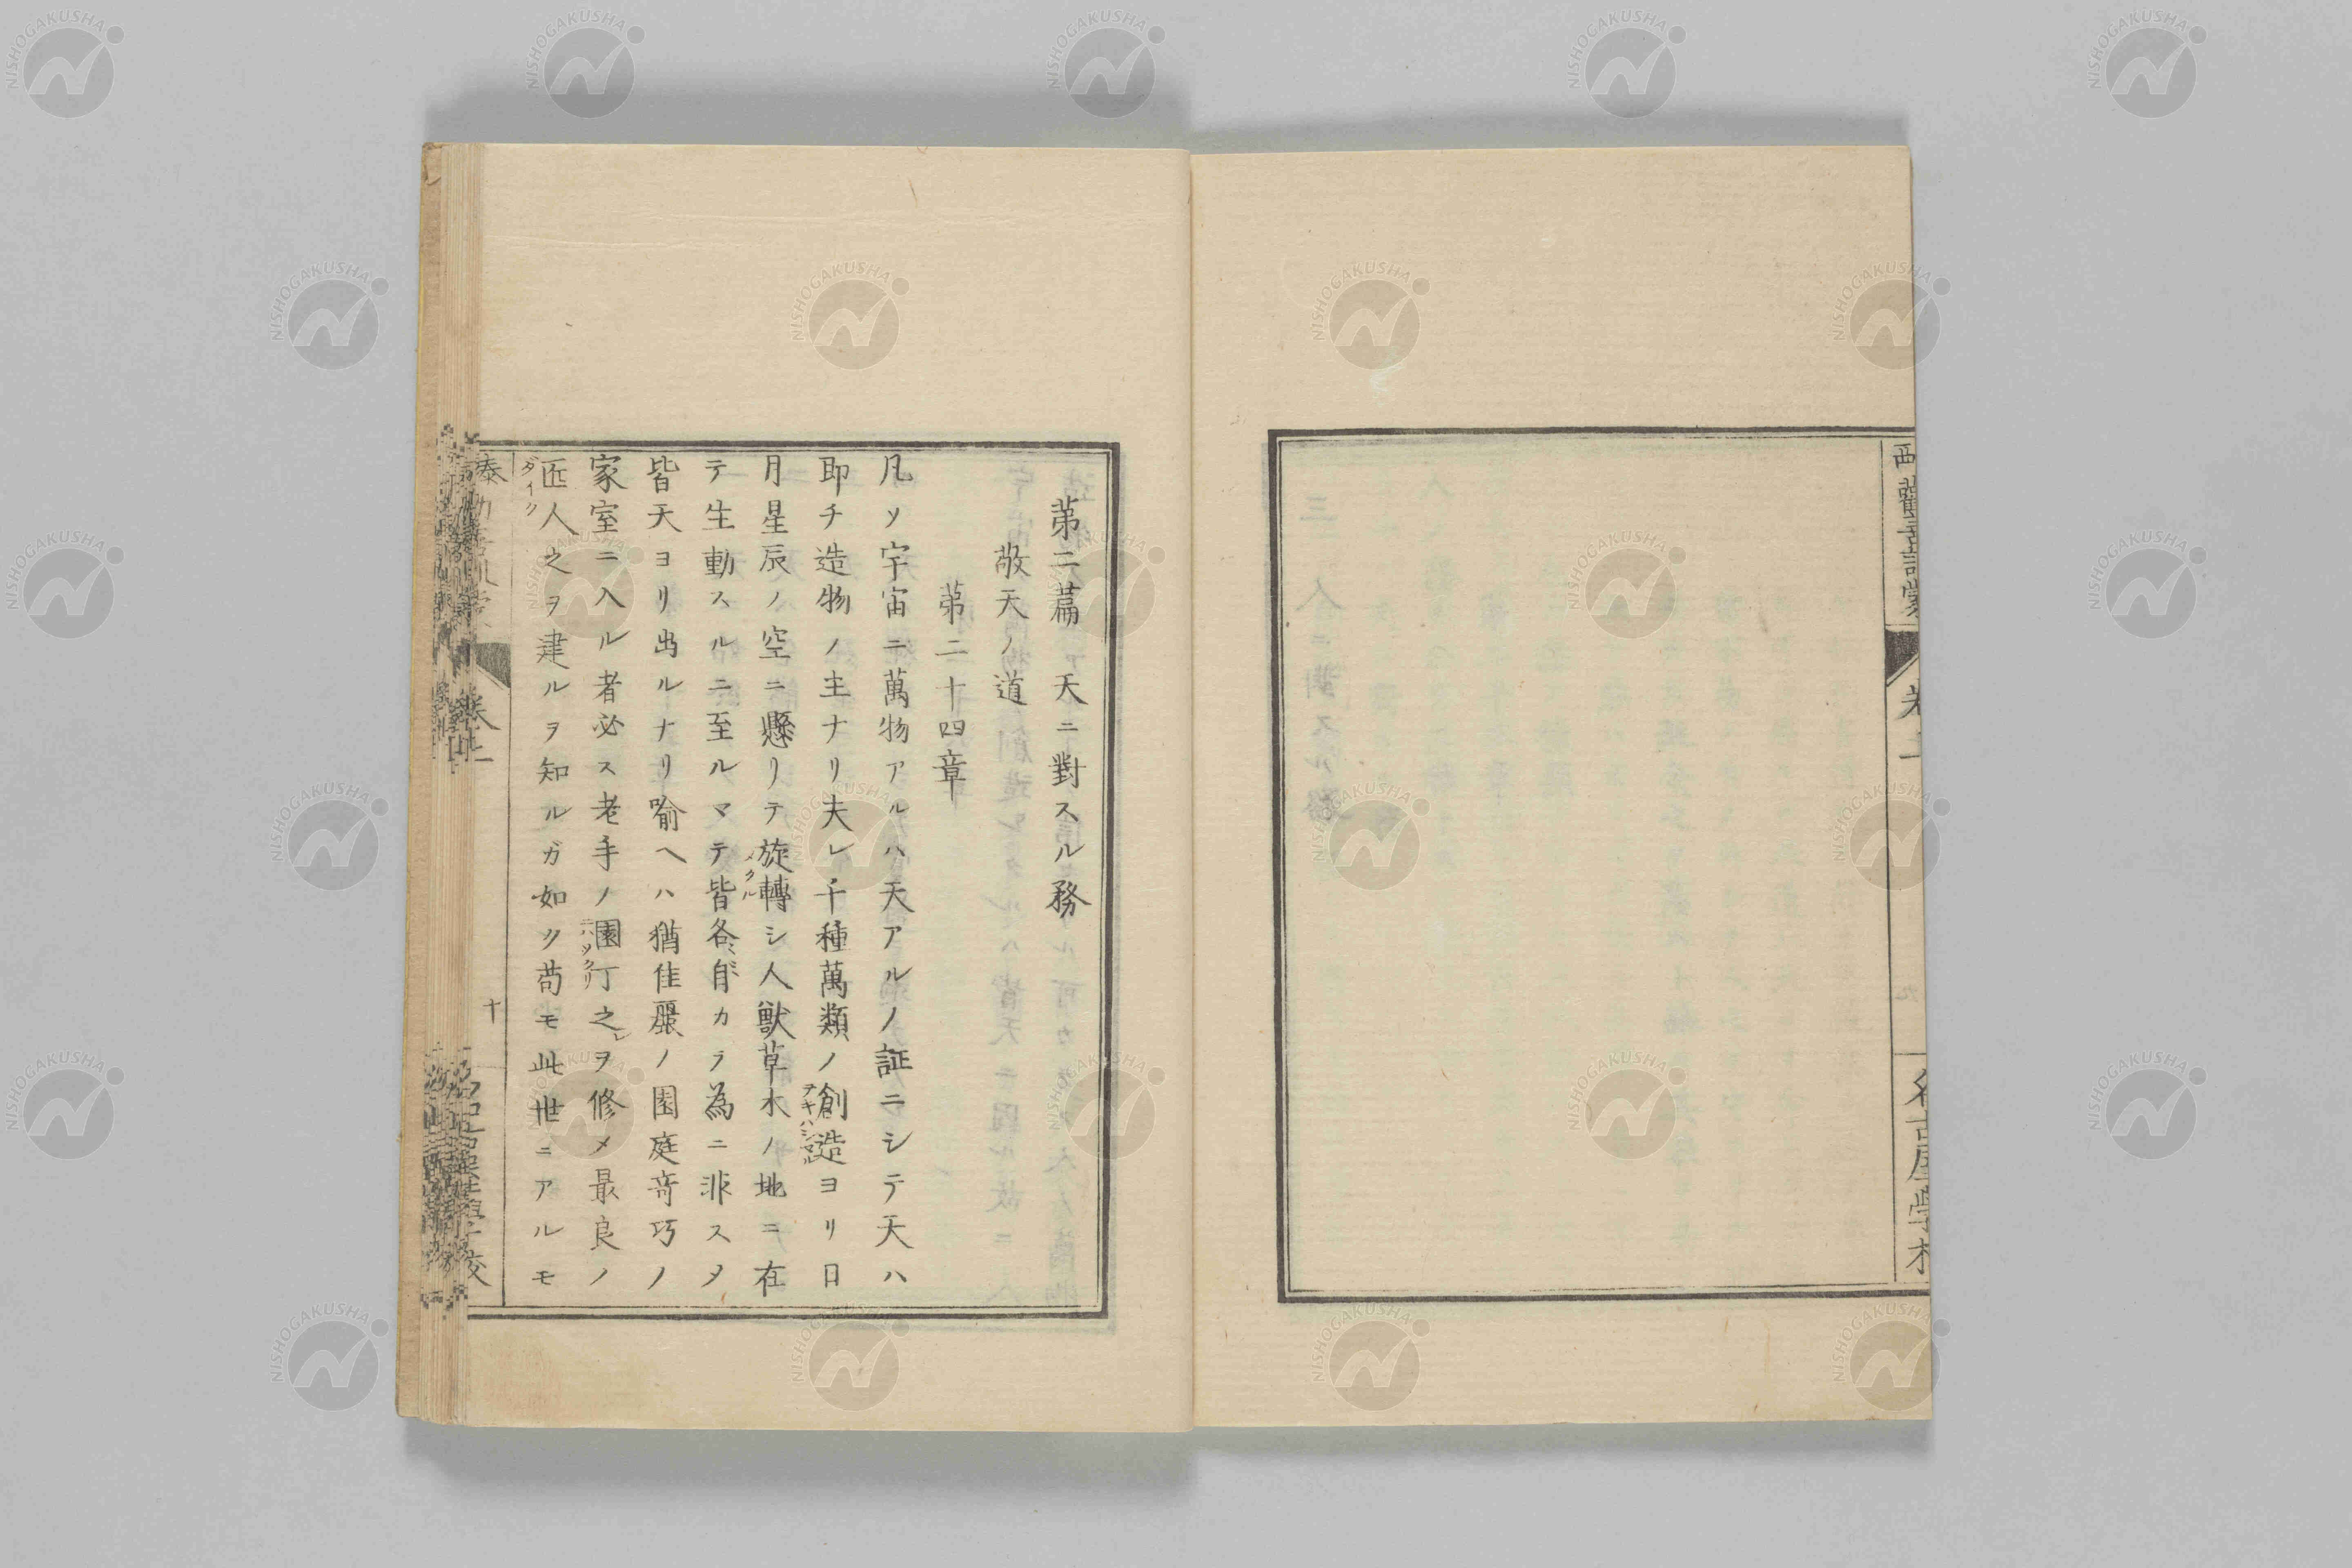 第二篇 天ニ對スル務
敬天ノ道
第二十四章
凡ソ宇宙ニ萬物アルハ天アルノ証ニシテ天ハ
即チ造物ノ主ナリ夫レ千種萬類ノ創造ヨリ日
月星辰ノ空ニ懸リテ旋轉シ人獣草木ノ地ニ在
テ生動スルニ至ルマテ皆各自カラ為ニ非スメ
皆天ヨリ出ルナリ喩ヘハ猶佳麗ノ園庭奇巧ノ
家室ニ入ル者必ス老手ノ園丁之ヲ修メ最良ノ
匠人之ヲ建ルヲ知ルガ如ク苟モ此世ニアルモ
十
NISHOGAKUSHA